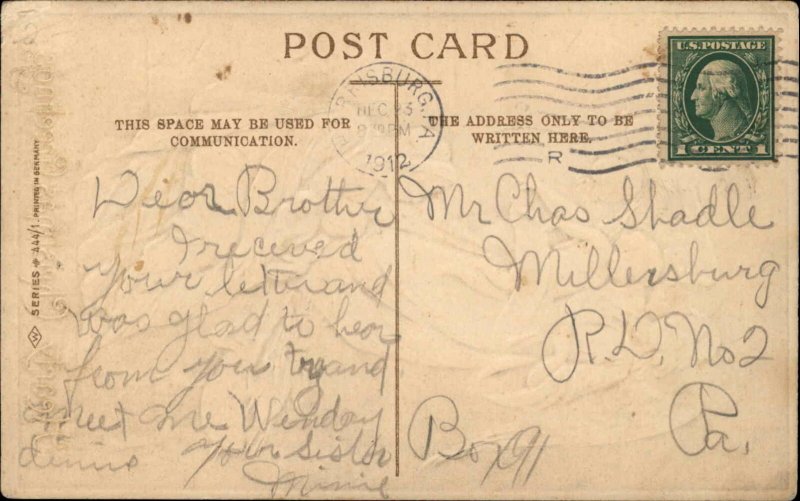 POST CARD
U.S. POSTAGE
1 CENT 1
HARRISBURG, PA
DEC 23
PM
1912
R
THIS SPACE MAY BE USED FOR
COMMUNICATION.
THE ADDRESS ONLY TO BE
WRITTEN HERE.
SERIES # 444/1. PRINTED IN GERMANY
W
Dear Brother
I receved
your letter and
was glad to hear
from you try and
meet me Wenday
your Sister
Minie
Mr Chas Shadle
Millersburg
R.D. No 2
Box 91
Pa.